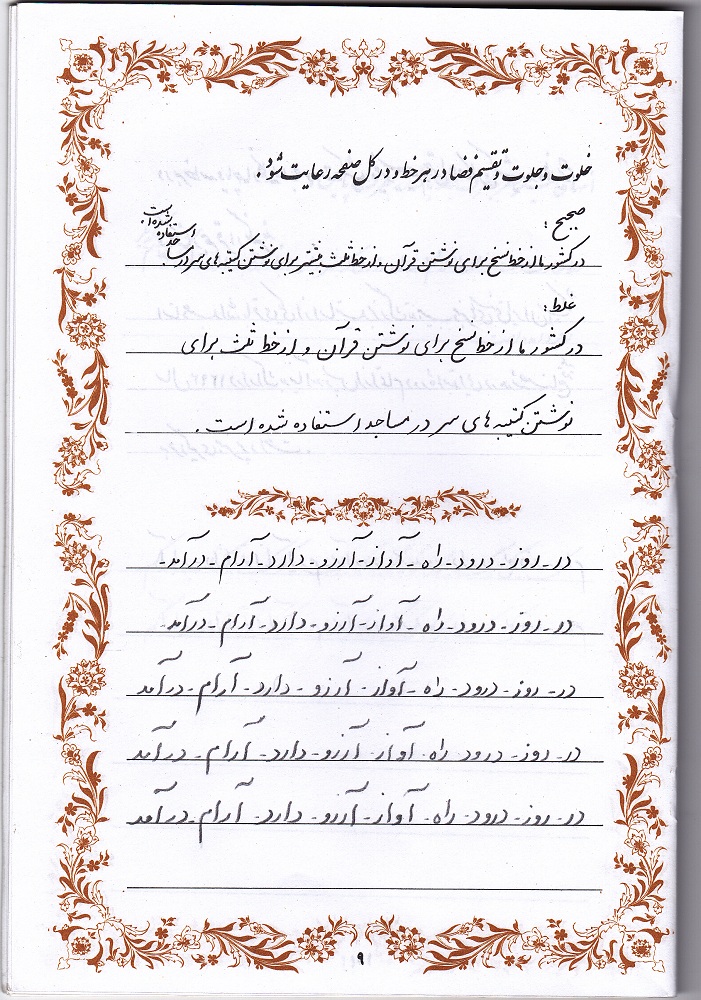 خلوت و جلوت و تقسیم فضا در هر خط و در کل صفحه رعایت شود.
صحیح:
در کشور ما از خط نسخ برای نوشتن قرآن و از خط ثلث بیشتر برای نوشتن کتیبه های سر در مساجد استفاده شده است.
غلط:
در کشور ما از خط نسخ برای نوشتن قرآن و از خط ثلث برای
نوشتن کتیبه های سر در مساجد استفاده شده است.
در - روز - درود - راه - آواز - آرزو - دارد - آرام - درآمد -
در - روز - درود - راه - آواز - آرزو - دارد - آرام - درآمد -
در - روز - درود - راه - آواز - آرزو - دارد - آرام - درآمد
در - روز - درود - راه - آواز - آرزو - دارد - آرام - درآمد
در - روز - درود - راه - آواز - آرزو - دارد - آرام - درآمد
۹